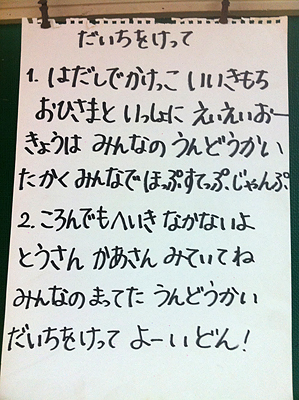 だいちをけって
1. はだしでかけっこ いいきもち
おひさまと いっしょに えいえいおー
きょうは みんなの うんどうかい
たかく みんなで ほっぷ、すてっぷ、じゃんぷ
2. ころんでもへいき なかないよ
とうさん かあさん みていてね
みんなの まってた うんどうかい
だいちをけって よーいどん!